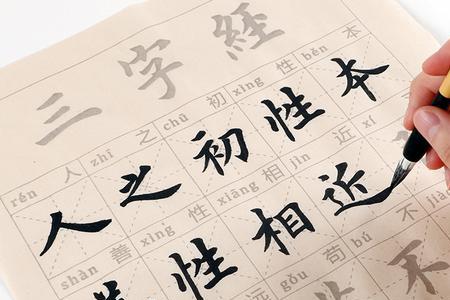 三字經
rén 人 zhī 之 chū 初 xìng 性 běn 本
人之初性本
shàn 善 xìng 性 xiāng 相 jìn 近 xí
善性相近
远 gǒu 苟 bú 不 jiào
不